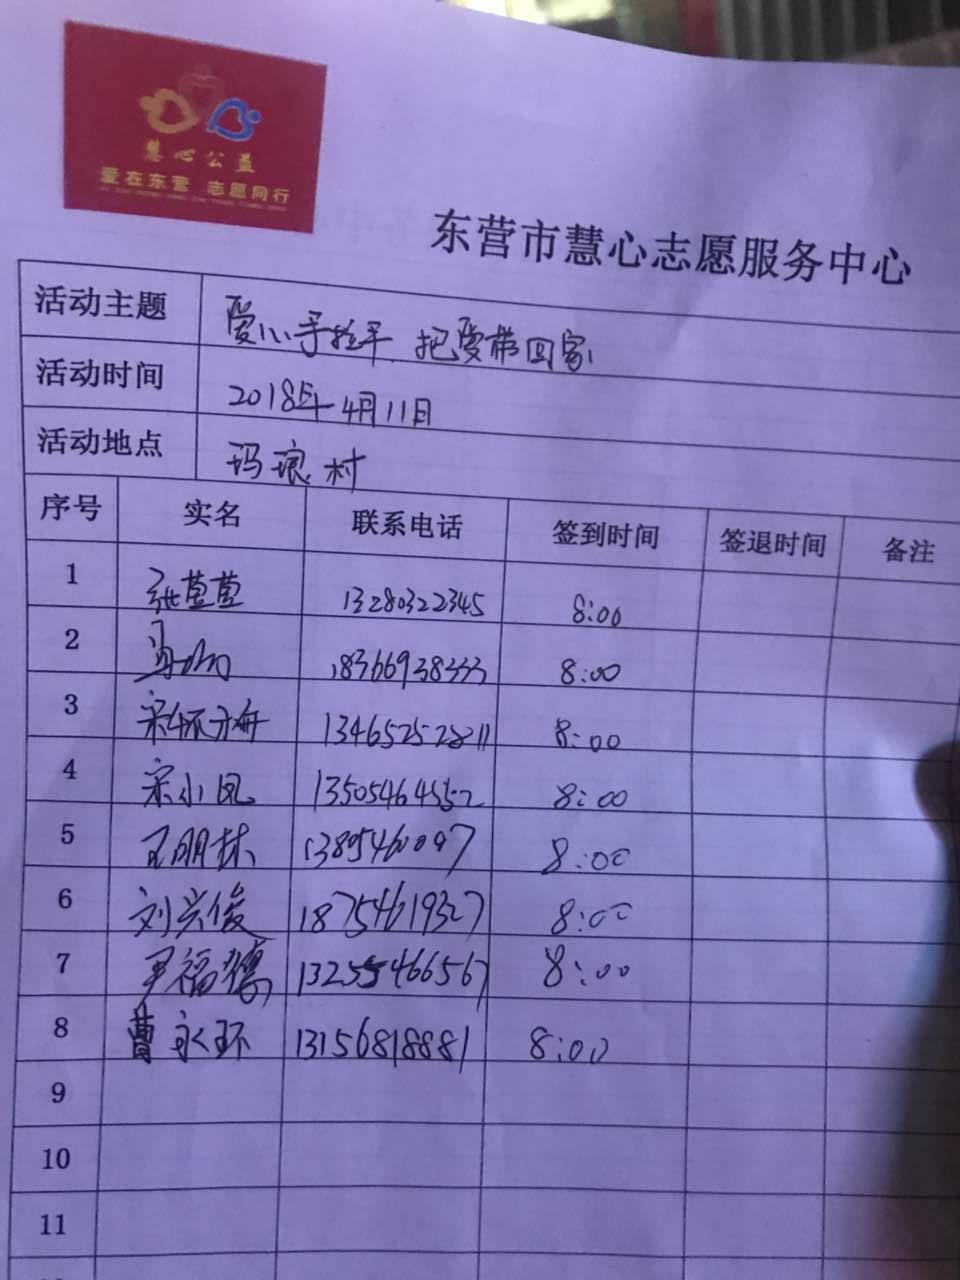 慧心公益
爱在东营 志愿同行
东营市慧心志愿服务中心
活动主题 爱心手拉手 把爱带回家
活动时间 2018年4月11日
活动地点 玛琅村
序号 实名 联系电话 签到时间 签退时间 备注
1 张萱萱 13280322345 8:00
2 18366938333 8:00
3 13465252811 8:00
4 宋小凤 13505464552 8:00
5 王明林 8:00
6 刘兴俊 18754619327 8:00
7 尹福德 13255466567 8:00
8 曹永环 13156818881 8:00
9
10
11